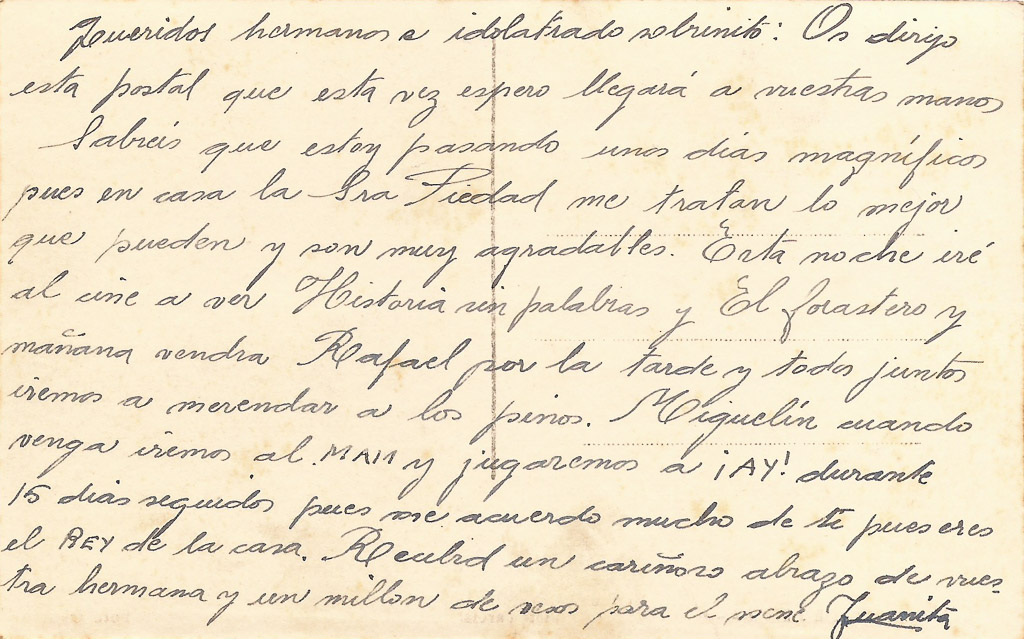 Queridos hermanos e idolatrado sobrinito: Os dirijo
esta postal que esta vez espero llegará a vuestras manos
Sabreis que estoy pasando unos dias magníficos
pues en casa la Sra Piedad me tratan lo mejor
que pueden y son muy agradables. Esta noche iré
al cine a ver Historia sin palabras y El forastero y
mañana vendra Rafael por la tarde y todos juntos
iremos a merendar a los pinos. Miguelín cuando
venga iremos al MAM y jugaremos a ¡AY! durante
15 dias seguidos pues me acuerdo mucho de ti pues eres
el REY de la casa. Recibid un cariñoso abrazo de vues-
tra hermana y un millon de vesos para el nene. Juanita